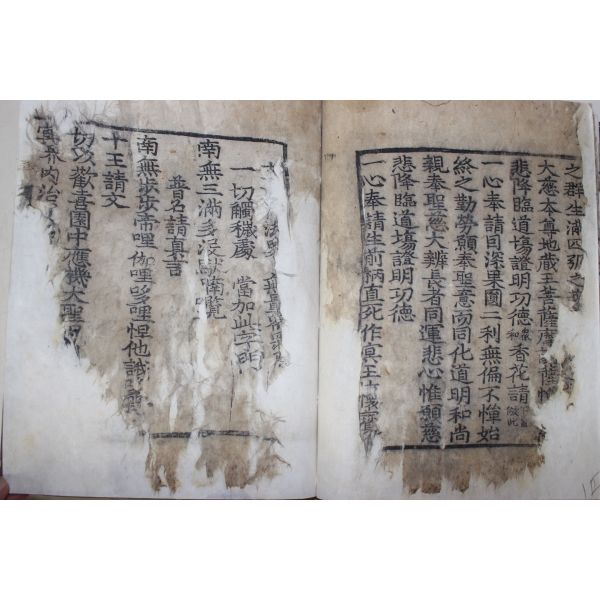 之群生滿四弘之
大悲本尊地藏王菩薩摩薩惟
悲降臨道場證明功德衆和香花請下皆倣此
一心奉請因深果圓二利無偏不憚始
終之勤勞願奉聖意而同化道明和尚
親奉聖慈大辨長者同運悲心惟願慈
悲降臨道場證明功德
一心奉請生前柄直死作冥王懷
一切觸穢處 當加此字門
南無三滿多沒馱喃囕
普召請眞言
南無步步帝哩伽哩哆哩怛他誐
十王請文
切以歡喜園中應機大聖
冥界內治